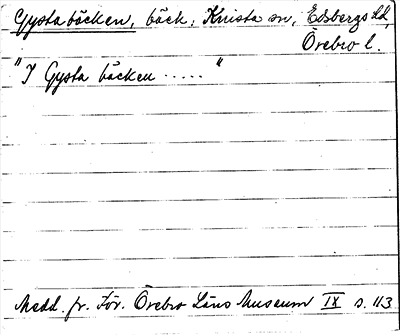 Gysta bäcken, bäck; Knista sn, Edsbergs hd,
Örebro l.
"I Gysta bäcken ....."
Medd. fr. För. Örebro Läns Museum IX s. 113